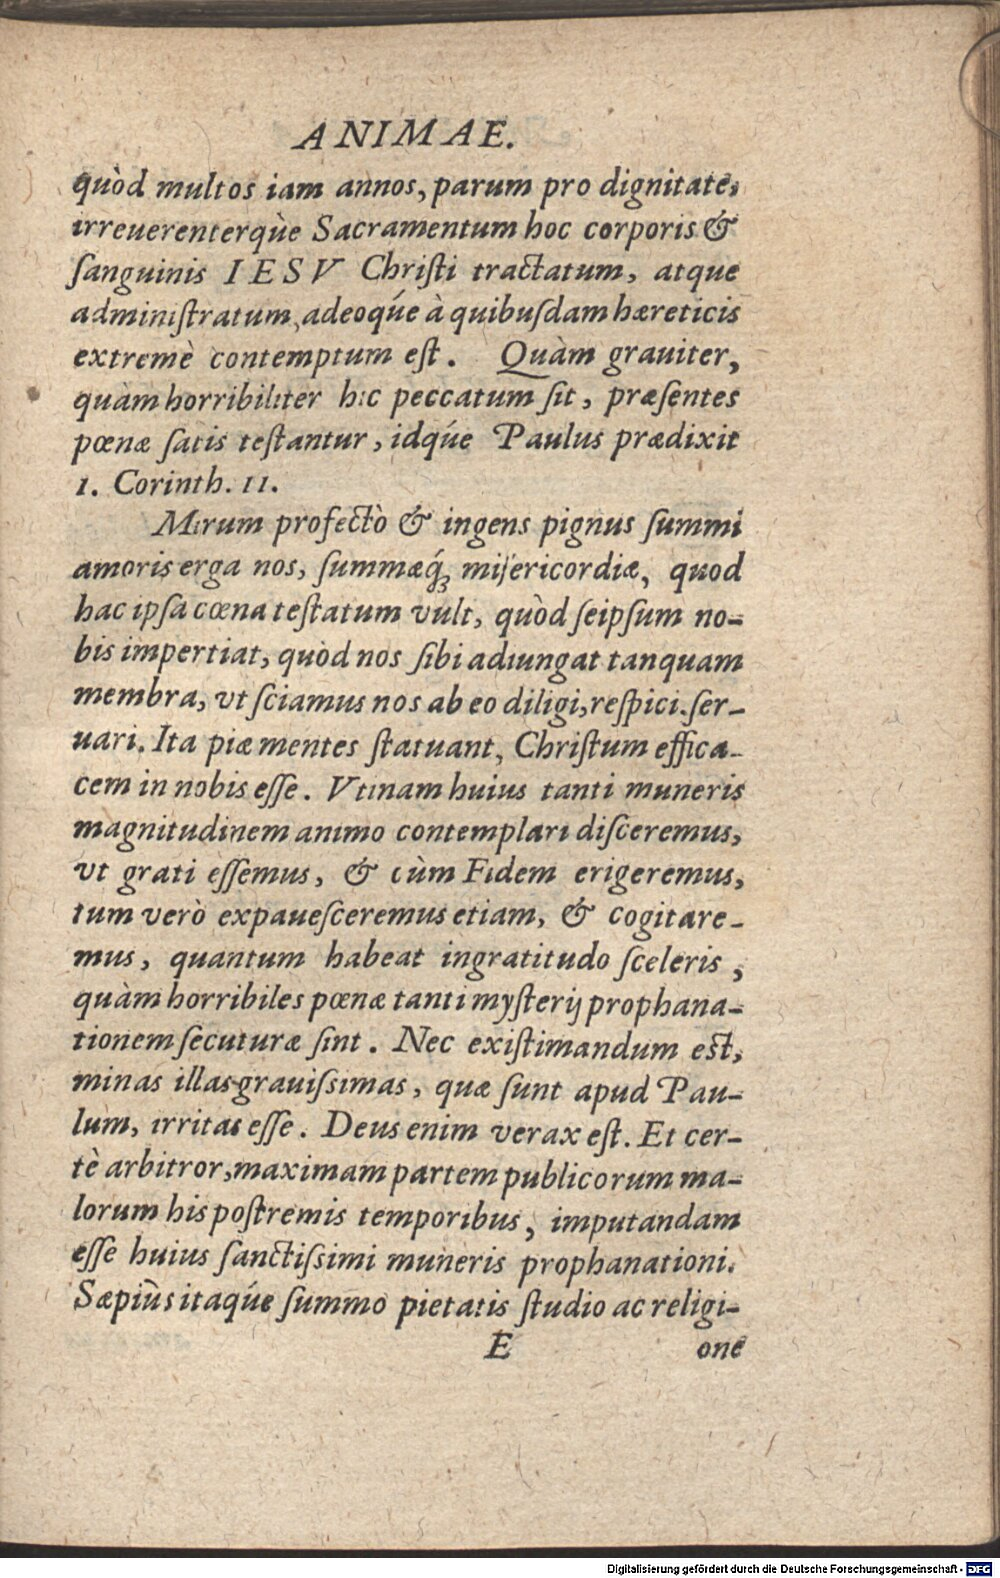 ANIMAE.
quòd multos iam annos, parum pro dignitate,
irreuerenterq́ùe Sacramentum hoc corporis &
ſanguinis IESV Chriſti tractatum, atque
adminiſtratum, adeoq́ue à quibuſdam hæreticis
extremè contemptum eſt. Quàm grauiter,
quàm horribiliter hic peccatum ſit, præſentes
pœnæ ſatis teſtantur, idq́ue Paulus prædixit
1. Corinth. 11.
Mirum profectò & ingens pignus ſummi
amoris erga nos, ſummæq́; miſericordiæ, quod
hac ipſa cœna teſtatum vult, quòd ſeipſum no-
bis impertiat, quòd nos ſibi adiungat tanquam
membra, vt ſciamus nos ab eo diligi, reſpici, ſer-
uari. Ita piæ mentes ſtatuant, Chriſtum effica-
cem in nobis eſſe. Vtinam huius tanti muneris
magnitudinem animo contemplari diſceremus,
vt grati eſſemus, & cùm Fidem erigeremus,
tum verò expaueſceremus etiam, & cogitare-
mus, quantum habeat ingratitudo ſceleris,
quàm horribiles pœnæ tanti myſterij prophana-
tionem ſecuturæ ſint. Nec exiſtimandum eſt,
minas illas grauiſsimas, quæ ſunt apud Pau-
lum, irritas eſſe. Deus enim verax eſt. Et cer-
tè arbitror, maximam partem publicorum ma-
lorum his poſtremis temporibus, imputandam
eſſe huius ſanctiſsimi muneris prophanationi.
Sæpiùs itaq́ue ſummo pietatis ſtudio ac religi-
E one
Digitalisierung gefördert durch die Deutsche Forschungsgemeinschaft - DFG